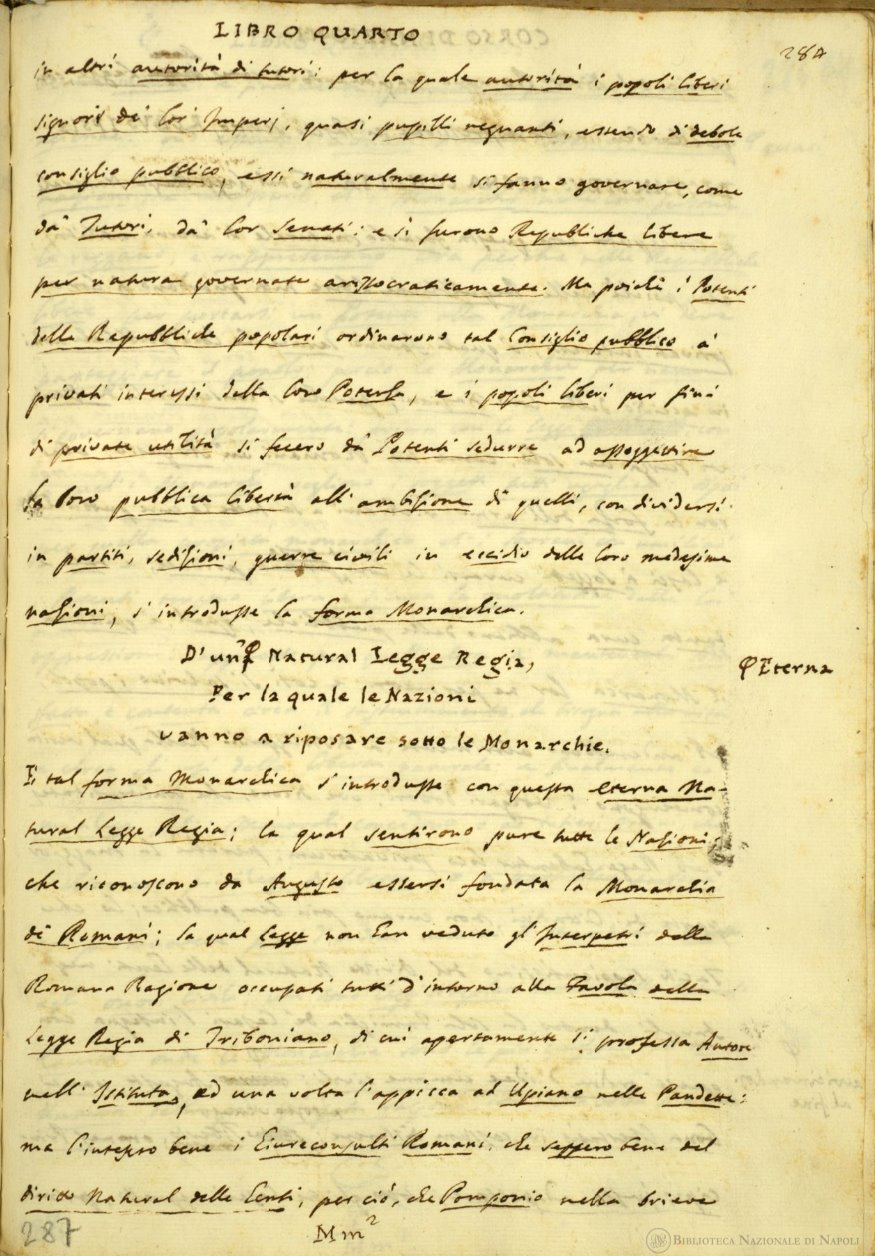 LIBRO QUARTO
284
in altri autorità di tutori: per la quale autorità i popoli liberi
signori de' lor Imperj, quasi pupilli regnanti, essendo di debole
consiglio pubblico, essi naturalmente si fanno governare, come
da' Tutori, da' lor Senati: e sì furono Repubbliche libere
per natura governate aristocraticamente. Ma poichè i Potenti
delle Repubbliche popolari ordinarono tal Consiglio pubblico a'
privati interessi della loro Potenza, e i popoli liberi per fini
di private utilità si fecero da' Potenti sedurre ad assoggettire
la loro pubblica libertà all' ambizione di quelli, con dividersi
in partiti, sedizioni, guerre civili in eccidio delle loro medesime
nazioni, s' introdusse la forma Monarchica.
D' un' Natural Legge Regia,
Eterna
Per la quale le Nazioni
vanno a riposare sotto le Monarchie.
E tal forma Monarchica s' introdusse con questa eterna Na-
tural Legge Regia; la qual sentirono pure tutte le Nazioni;
che riconoscono da Augusto essersi fondata la Monarchia
de' Romani; la qual legge non han veduto gl' Interpetri della
Romana Ragione occupati tutti d' intorno alla Favola della
Legge Regia di Triboniano, di cui apertamente si professa Autore
nell' Istituta, ed una volta l' appicca ad Ulpiano nelle Pandette:
ma l' intesero bene i Giureconsulti Romani, che seppero bene del
diritto Natural delle Genti, per ciò, che Pomponio nella brieve
287
Mm²
BIBLIOTECA NAZIONALE DI NAPOLI